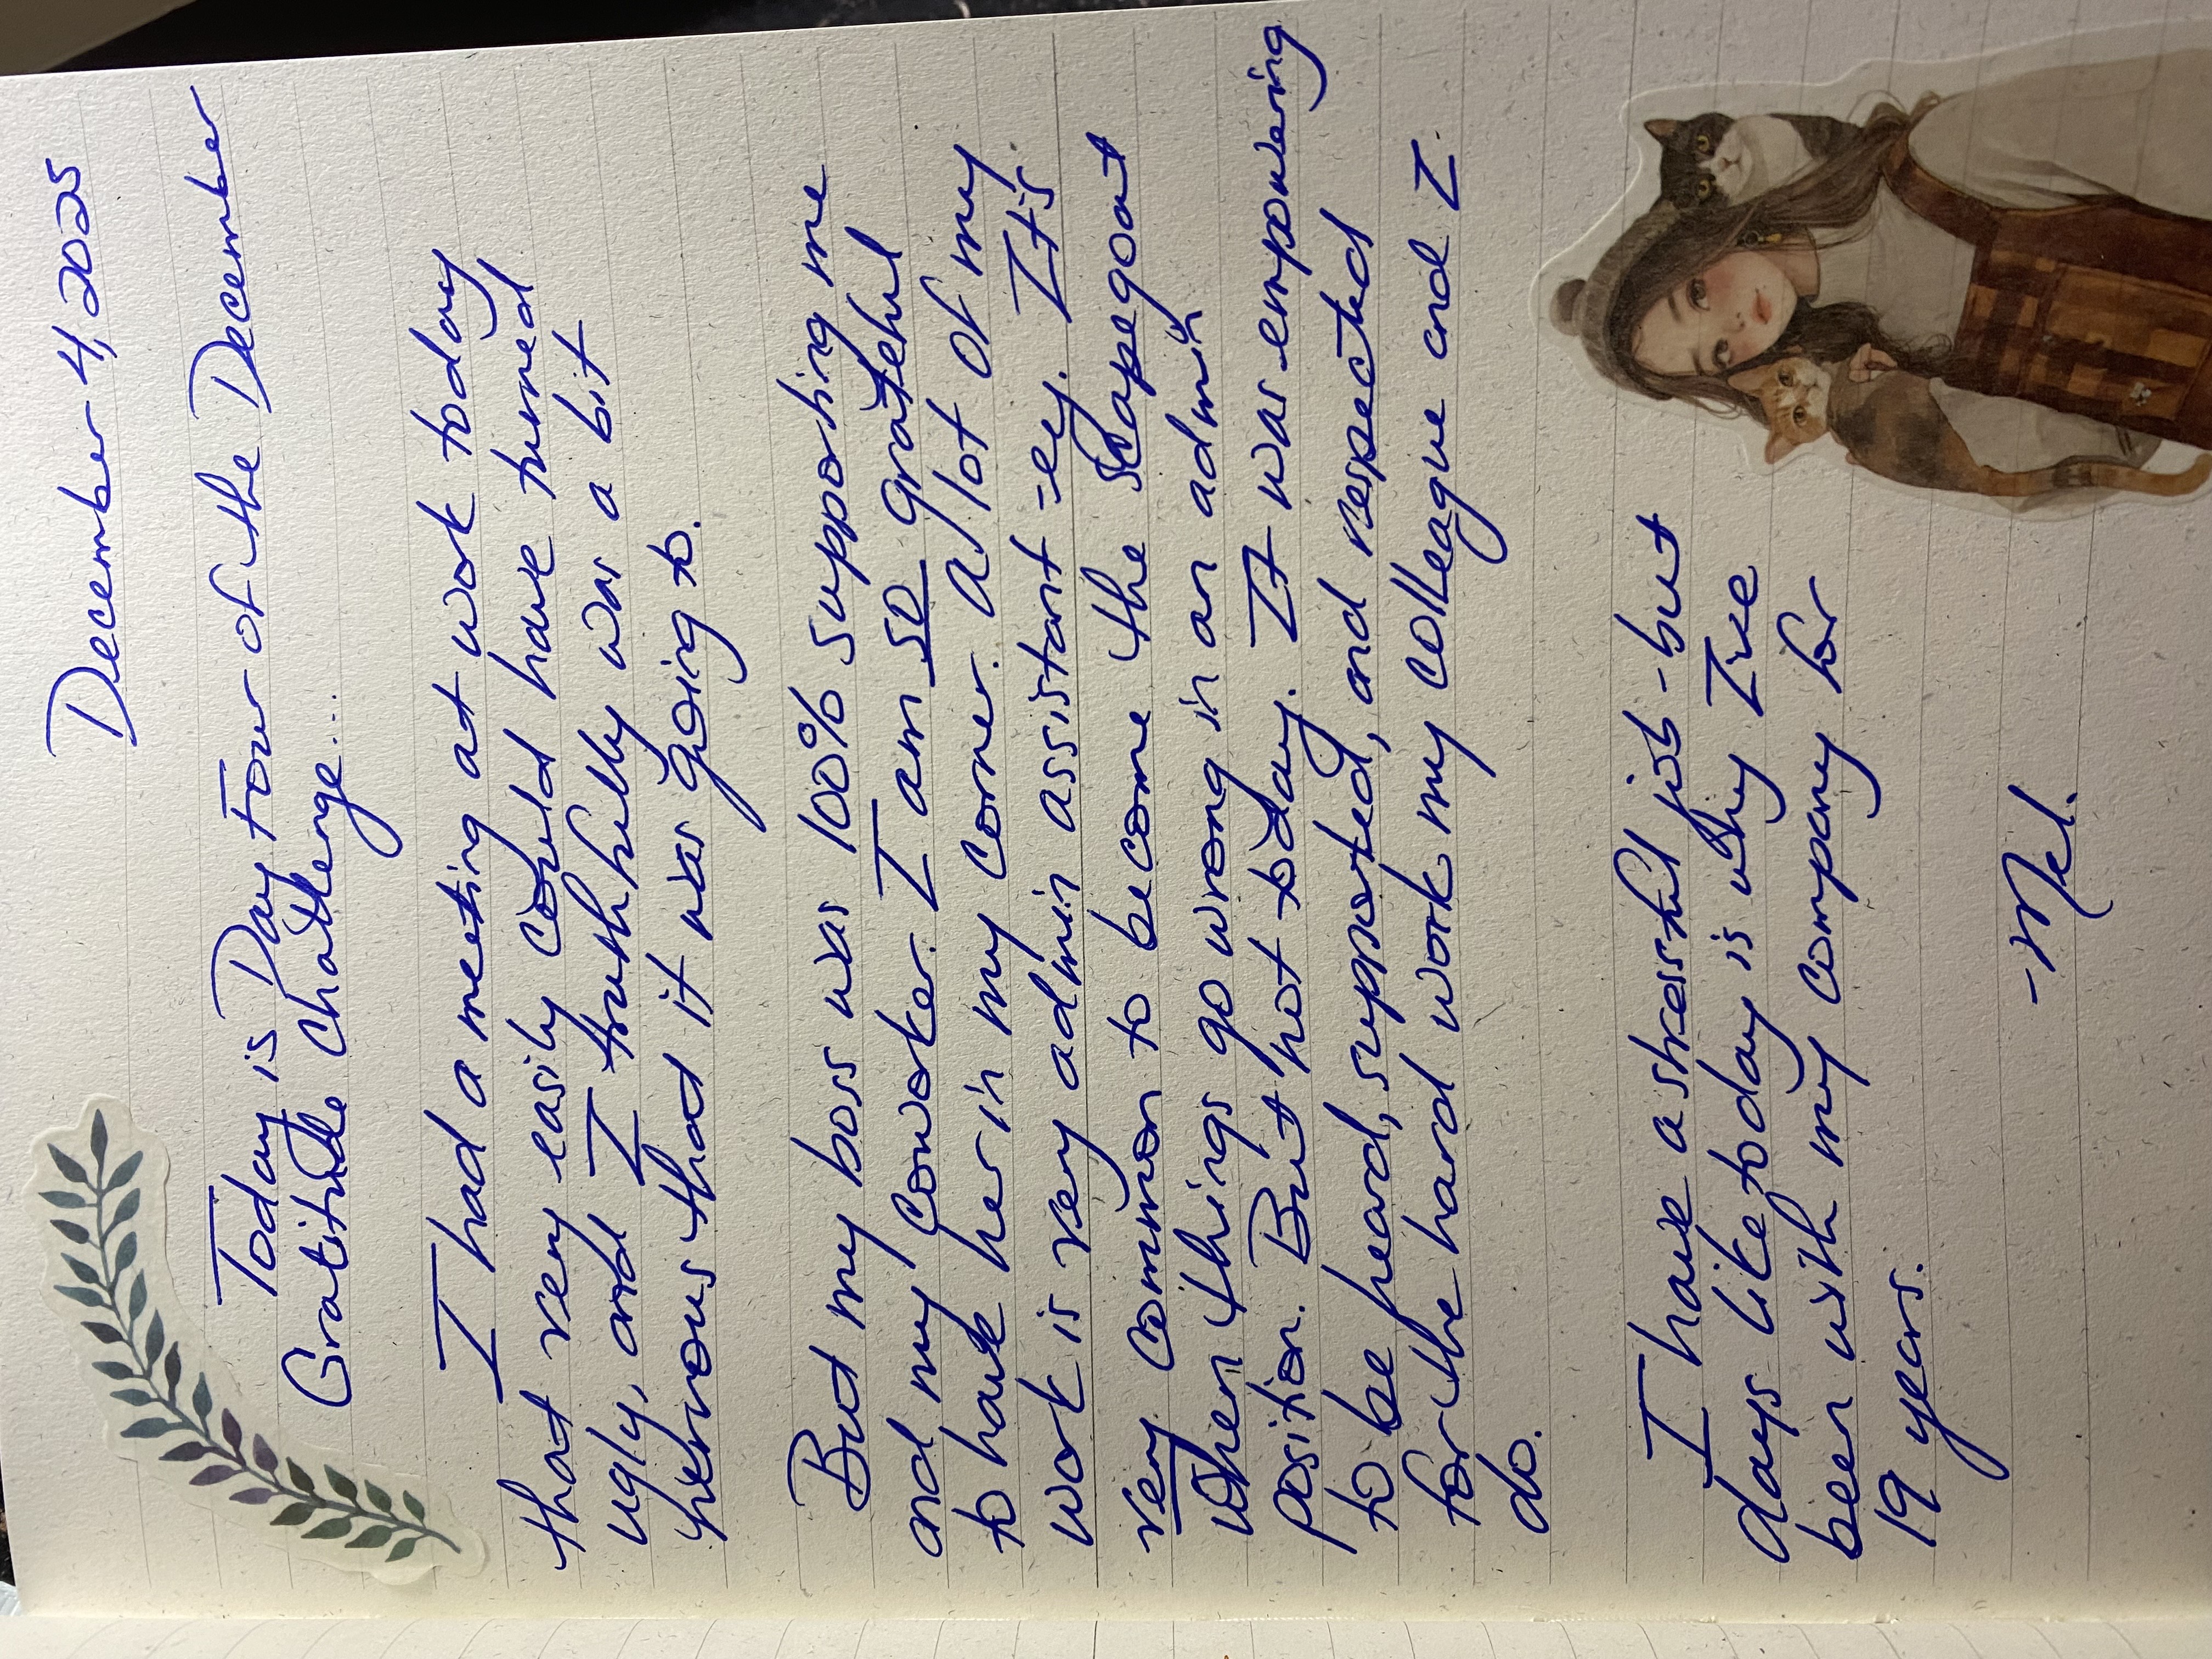 December 4, 2025
Today is Day Four of the December
Gratitude Challenge...
I had a meeting at work today
that very easily could have turned
ugly, and I truthfully was a bit
nervous that it was going to.
But my boss was 100% supporting me
and my coworker. I am so grateful
to have her in my corner. A lot of my
work is very admin assistant-ey. It's
very common to become the scapegoat
when things go wrong in an admin
position. But not today. It was empowering
to be heard, supported, and respected
for the hard work my colleague and I
do.
I have a stressful job - but
days like today is why I've
been with my company for
19 years.
-Mel.